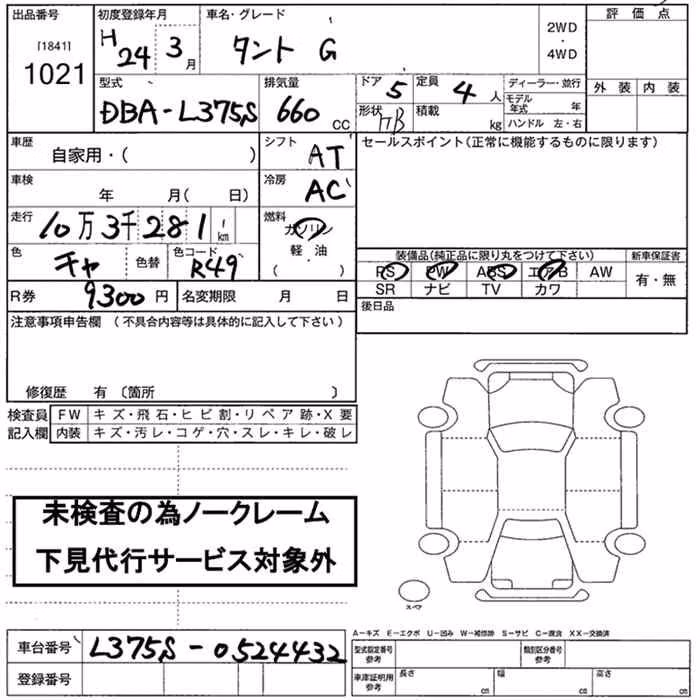 出品番号 初度登録年月 車名・グレード 評価点
[1841] H 24 3月 タント G 2WD・4WD
1021 外装 内装
型式 排気量 ドア 5 定員 4人 ディーラー・並行
DBA-L375S 660 CC 形状 HB 積載 kg モデル年式 年
ハンドル 左・右
車歴 シフト セールスポイント(正常に機能するものに限ります)
自家用・( ) AT
車検 年 月( 日) 冷房 AC
走行 10万3千281 km 燃料 ガソリン
軽・油
( )
色 チャ 色替 色コード R49
装備品(純正品に限り丸をつけて下さい) 新車保証書
PS PW ABS エアB AW 有・無
SR ナビ TV カワ
R券 9300円 名変期限 月 日 後日品
注意事項申告欄 (不具合内容等は具体的に記入して下さい)
修復歴 有 〔箇所 〕
検査員 FW キズ・飛石・ヒビ割・リペア跡・X要
記入欄 内装 キズ・汚レ・コゲ・穴・スレ・キレ・破レ
未検査の為ノークレーム
下見代行サービス対象外
スペア
A-キズ E-エクボ U-凹み W-補修跡 S-サビ C-腐蝕 XX-交換済
車台番号 L375S-0524432 型式指定番号 参考 類別区分番号 参考
登録番号 車庫証明用 参考 長さ cm 幅 cm 高さ cm